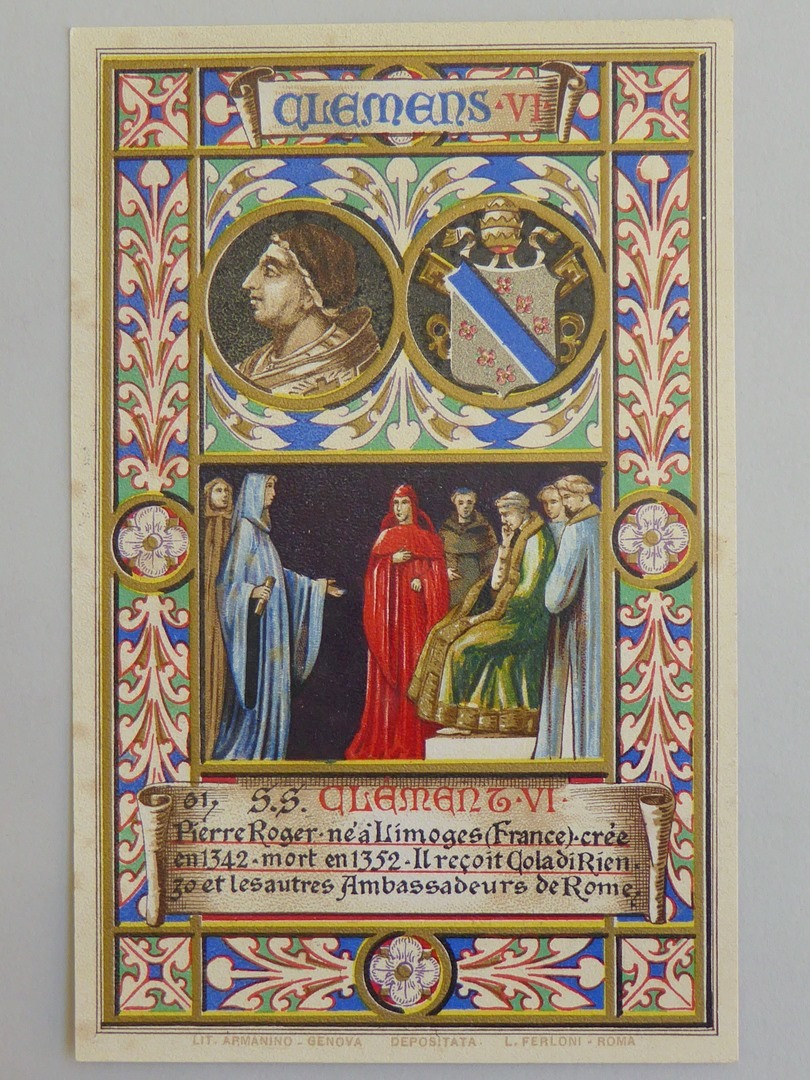 CLEMENS · VI
61, S.S. CLÉMENT · VI ·
Pierre Roger · né à Limoges (France) · crée
en 1342 · mort en 1352 · Il reçoit Cola di Rien ·
zo et les autres Ambassadeurs de Rome,
LIT. ARMANINO - GENOVA DEPOSITATA · L. FERLONI - ROMA